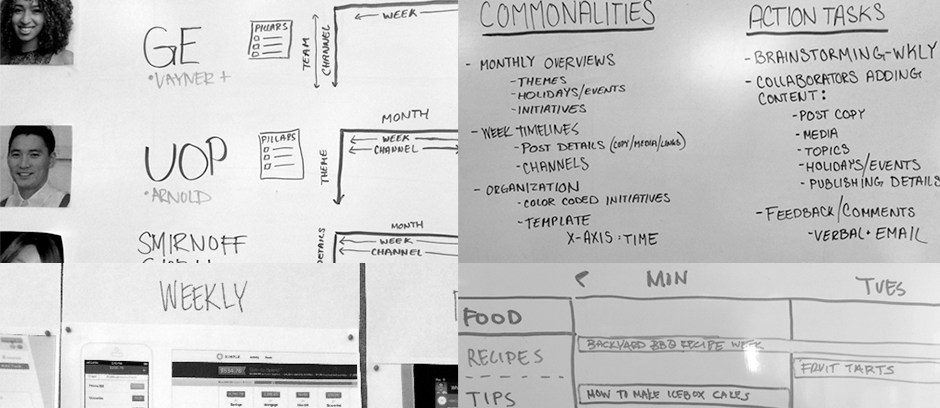 GE
•VAYNER +
PILLARS
TEAM
CHANNEL
WEEK
UOP
•ARNOLD
PILLARS
THEME
MONTH
WEEK
CHANNEL
SMIRNOFF
MONTH
WEEK
CHANNEL
COMMONALITIES
- MONTHLY OVERVIEWS
- THEMES
- HOLIDAYS/EVENTS
- INITIATIVES
- WEEK TIMELINES
- POST DETAILS (COPY/MEDIA/LINKS)
- CHANNELS
- ORGANIZATION
- COLOR CODED INITIATIVES
- TEMPLATE
X-AXIS = TIME
ACTION TASKS
- BRAINSTORMING - WKLY
- COLLABORATORS ADDING
CONTENT:
- POST COPY
- MEDIA
- TOPICS
- HOLIDAYS/EVENTS
- PUBLISHING DETAILS
- FEEDBACK/COMMENTS
- VERBAL + EMAIL
WEEKLY
SIMPLE
< MIN
TUES
FOOD
BACKYARD BBQ RECIPE WEEK
RECIPES
FRUIT TARTS
TIPS
HOW TO MAKE ICEBOX CAKES